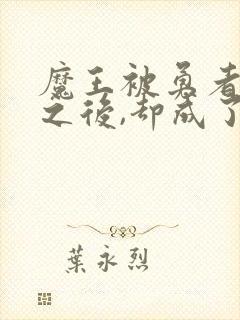 魔王被勇者
之後,却成了
葉永烈